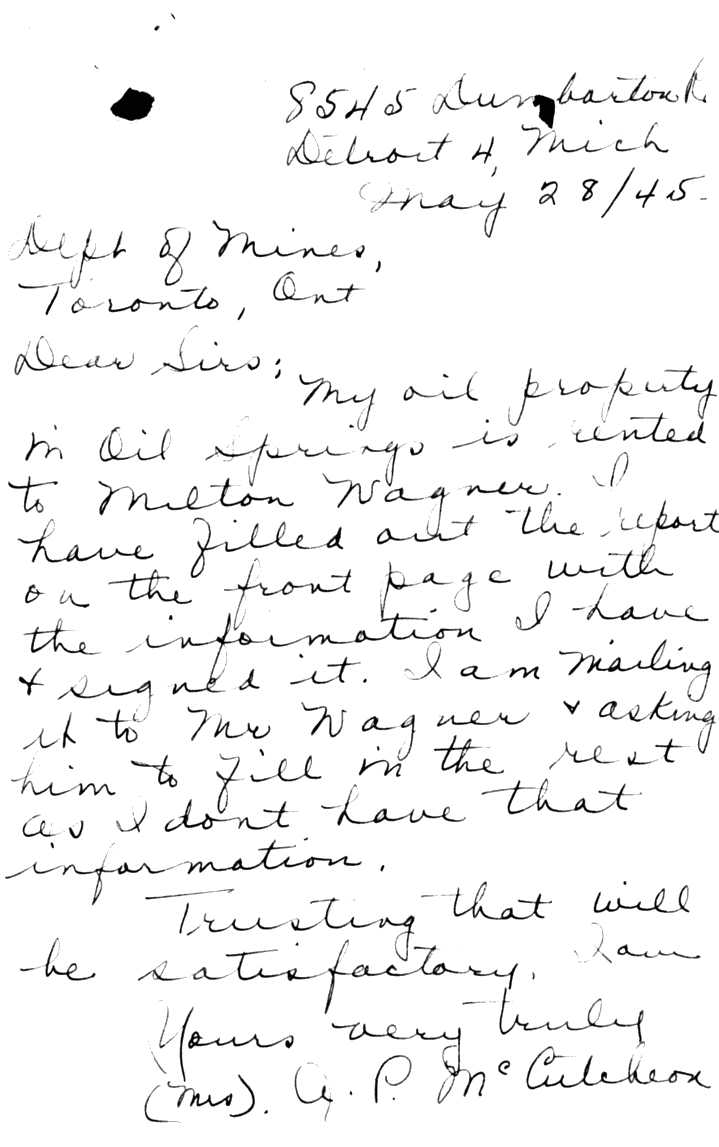 8545 Dumbarton R.
Detroit 4, Mich
May 28/45.
Dept of Mines,
Toronto, Ont
Dear Sirs:
My oil property
in Oil Springs is rented
to Milton Wagner. I
have filled out the report
on the front page with
the information I have
& signed it. I am mailing
it to Mr Wagner & asking
him to fill in the rest
as I dont have that
information.
Trusting that will
be satisfactory. I am
Yours very truly
(Mrs). A. P. McCutcheon